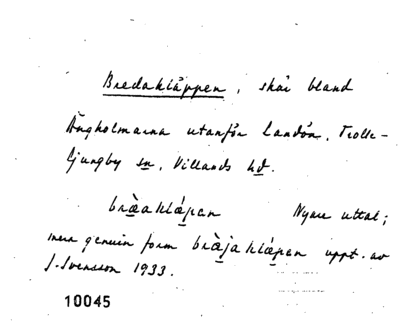 Bredakläppen, skär bland
Ängholmarna utanför Landön, Trolle-
Ljungby sn, Villands hd.
bràakläpan Nyare uttal;
mera genuin form bràjakläpan uppt. av
J. Svensson 1933.
10045